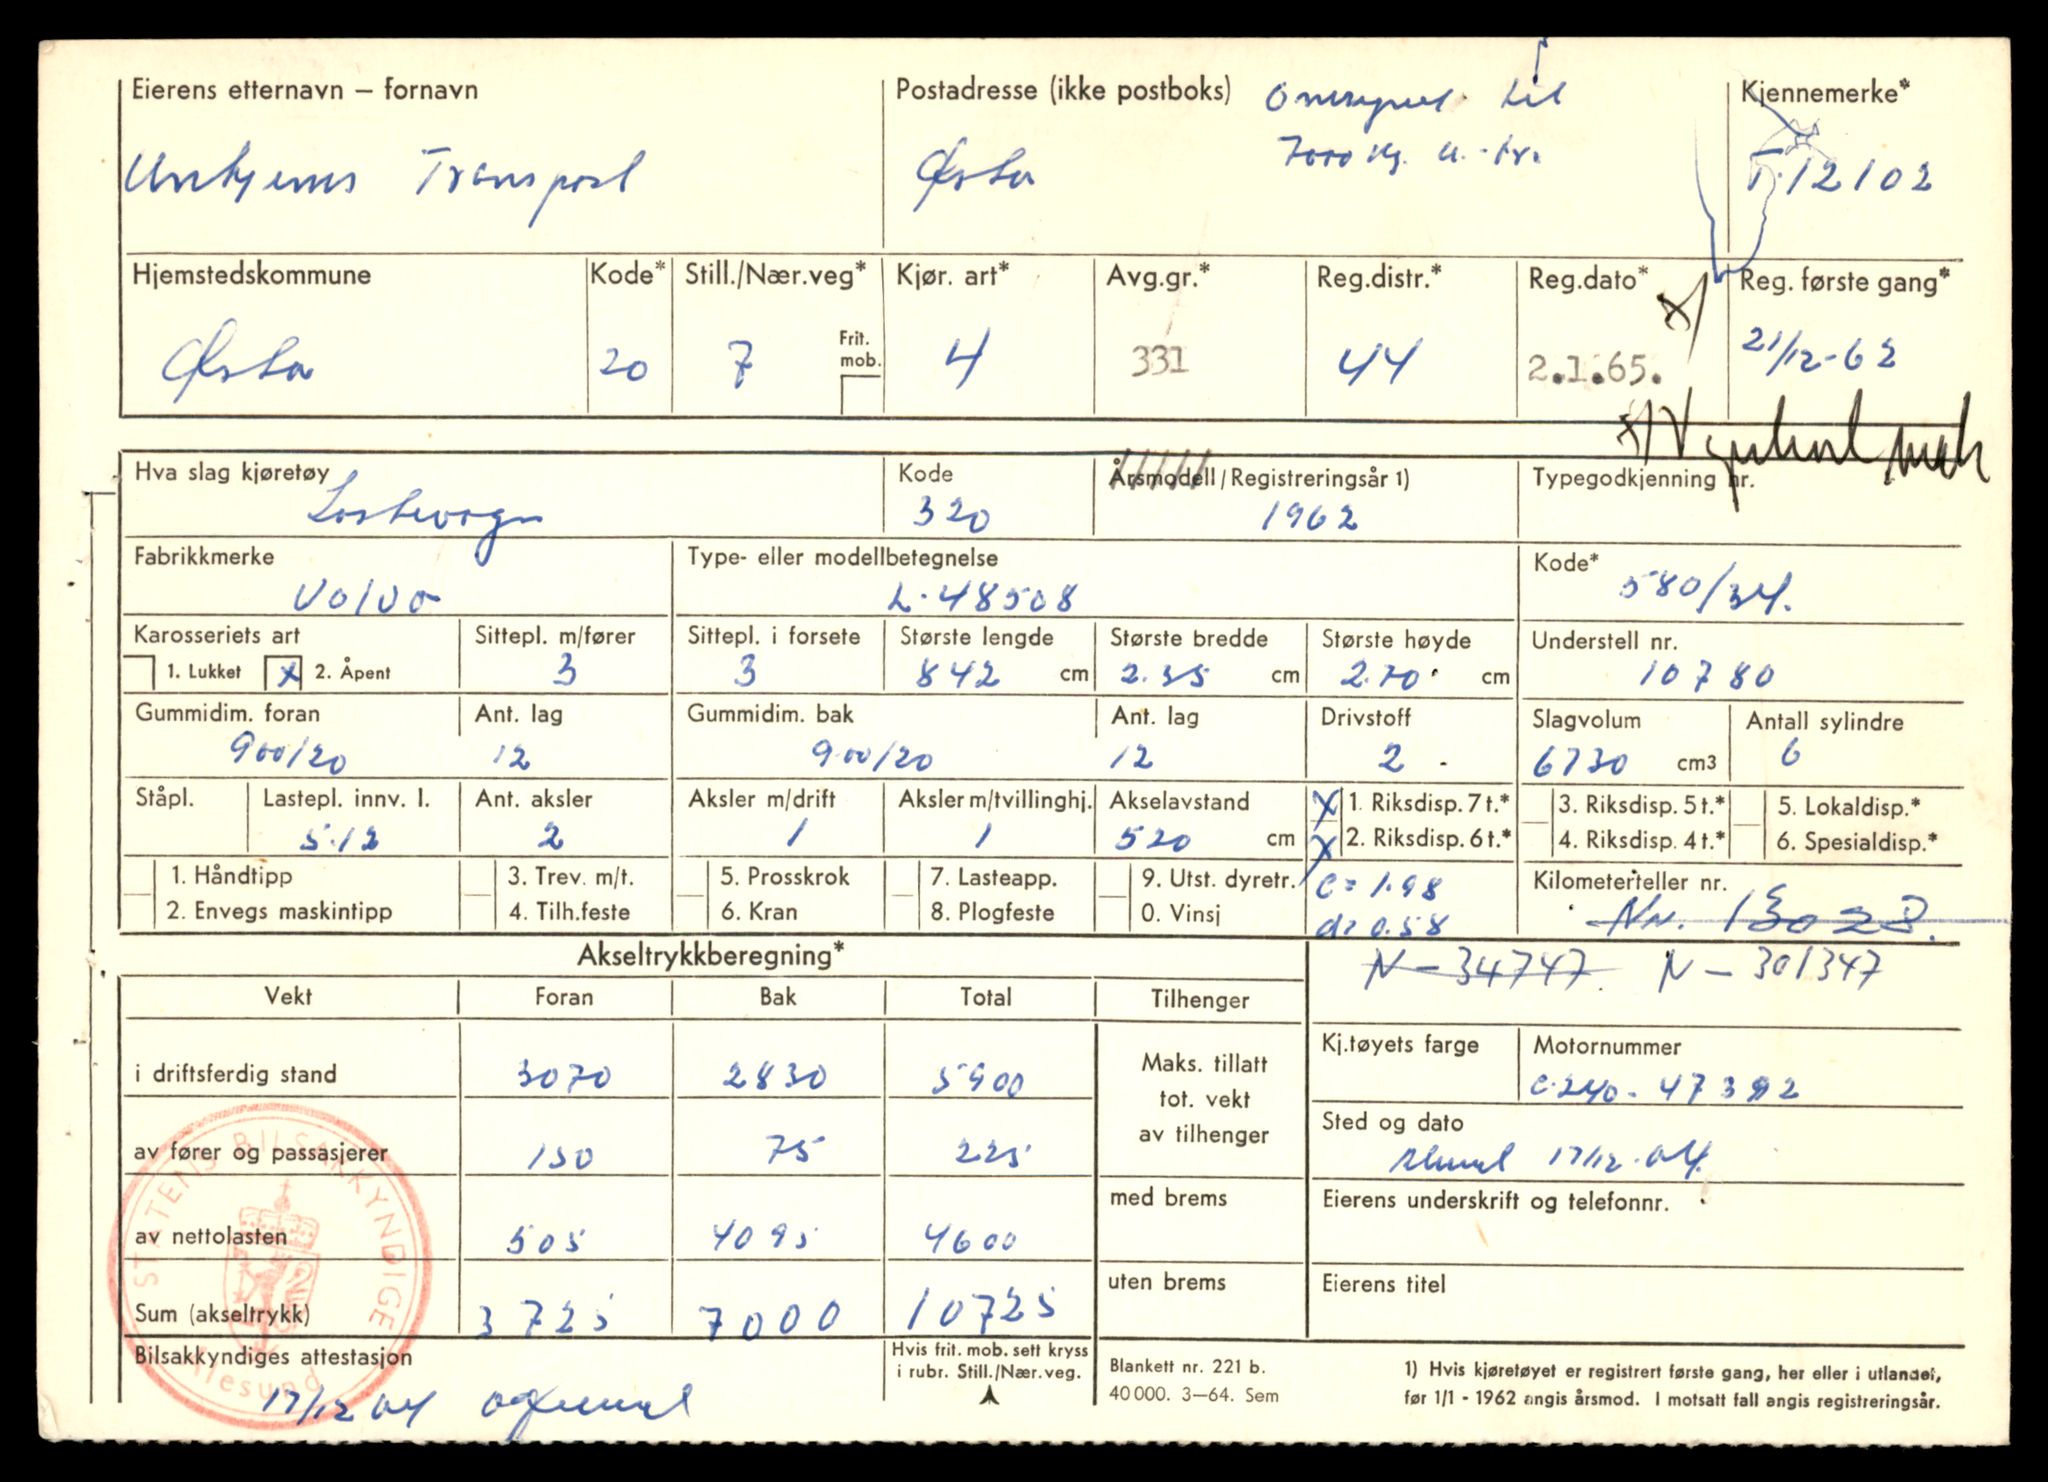 Eierens etternavn – fornavn
Postadresse (ikke postboks)
til
Kjennemerke*
Transport
Ørsta
7000 kg.
T-12102
Hjemstedskommune
Kode*
Still./Nær.veg*
Kjør. art*
Avg.gr.*
Reg.distr.*
Reg.dato*
Reg. første gang*
Ørsta
20
7
Frit. mob.
4
331
44
2.1.65.
21/12-62
Hva slag kjøretøy
Kode
Årsmodell/Registreringsår 1)
Typegodkjenning nr.
Lastevogn
320
1962
Fabrikkmerke
Type- eller modellbetegnelse
Kode*
Volvo
L-48508
580/34.
Karosseriets art
Sittepl. m/fører
Sittepl. i forsete
Største lengde
Største bredde
Største høyde
Understell nr.
1. Lukket
x 2. Åpent
3
3
842 cm
2.35 cm
2.70 cm
10780
Gummidim. foran
Ant. lag
Gummidim. bak
Ant. lag
Drivstoff
Slagvolum
Antall sylindre
900/20
12
900/20
12
2
6730 cm3
6
Ståpl.
Lastepl. innv. l.
Ant. aksler
Aksler m/drift
Aksler m/tvillinghj.
Akselavstand
x 1. Riksdisp. 7 t.*
3. Riksdisp. 5 t.*
5. Lokaldisp.*
5.12
2
1
1
520 cm
x 2. Riksdisp. 6 t.*
4. Riksdisp. 4 t.*
6. Spesialdisp.*
1. Håndtipp
3. Trev. m/t.
5. Prosskrok
7. Lasteapp.
9. Utst. dyretr.
c = 1.98
Kilometerteller nr.
2. Envegs maskintipp
4. Tilh.feste
6. Kran
8. Plogfeste
0. Vinsj
d = 0.58
Nr. 13028.
Akseltrykkberegning*
N-34747. N-301347
Vekt
Foran
Bak
Total
Tilhenger
i driftsferdig stand
3070
2830
5900
Maks. tillatt
tot. vekt
av tilhenger
Kj.tøyets farge
Motornummer
47392
av fører og passasjerer
150
75
225
Sted og dato
17/12-64.
av nettolasten
505
4095
4600
med brems
Eierens underskrift og telefonnr.
Sum (akseltrykk)
3725
7000
10725
uten brems
Eierens titel
STATENS BILSAKKYNDIGE
Ålesund
Bilsakkyndiges attestasjon
17/12 64
Hvis frit. mob. sett kryss
i rubr. Still./Nær.veg.
Blankett nr. 221 b.
40 000. 3–64. Sem
1) Hvis kjøretøyet er registrert første gang, her eller i utlandet,
før 1/1 - 1962 angis årsmod. I motsatt fall angis registreringsår.